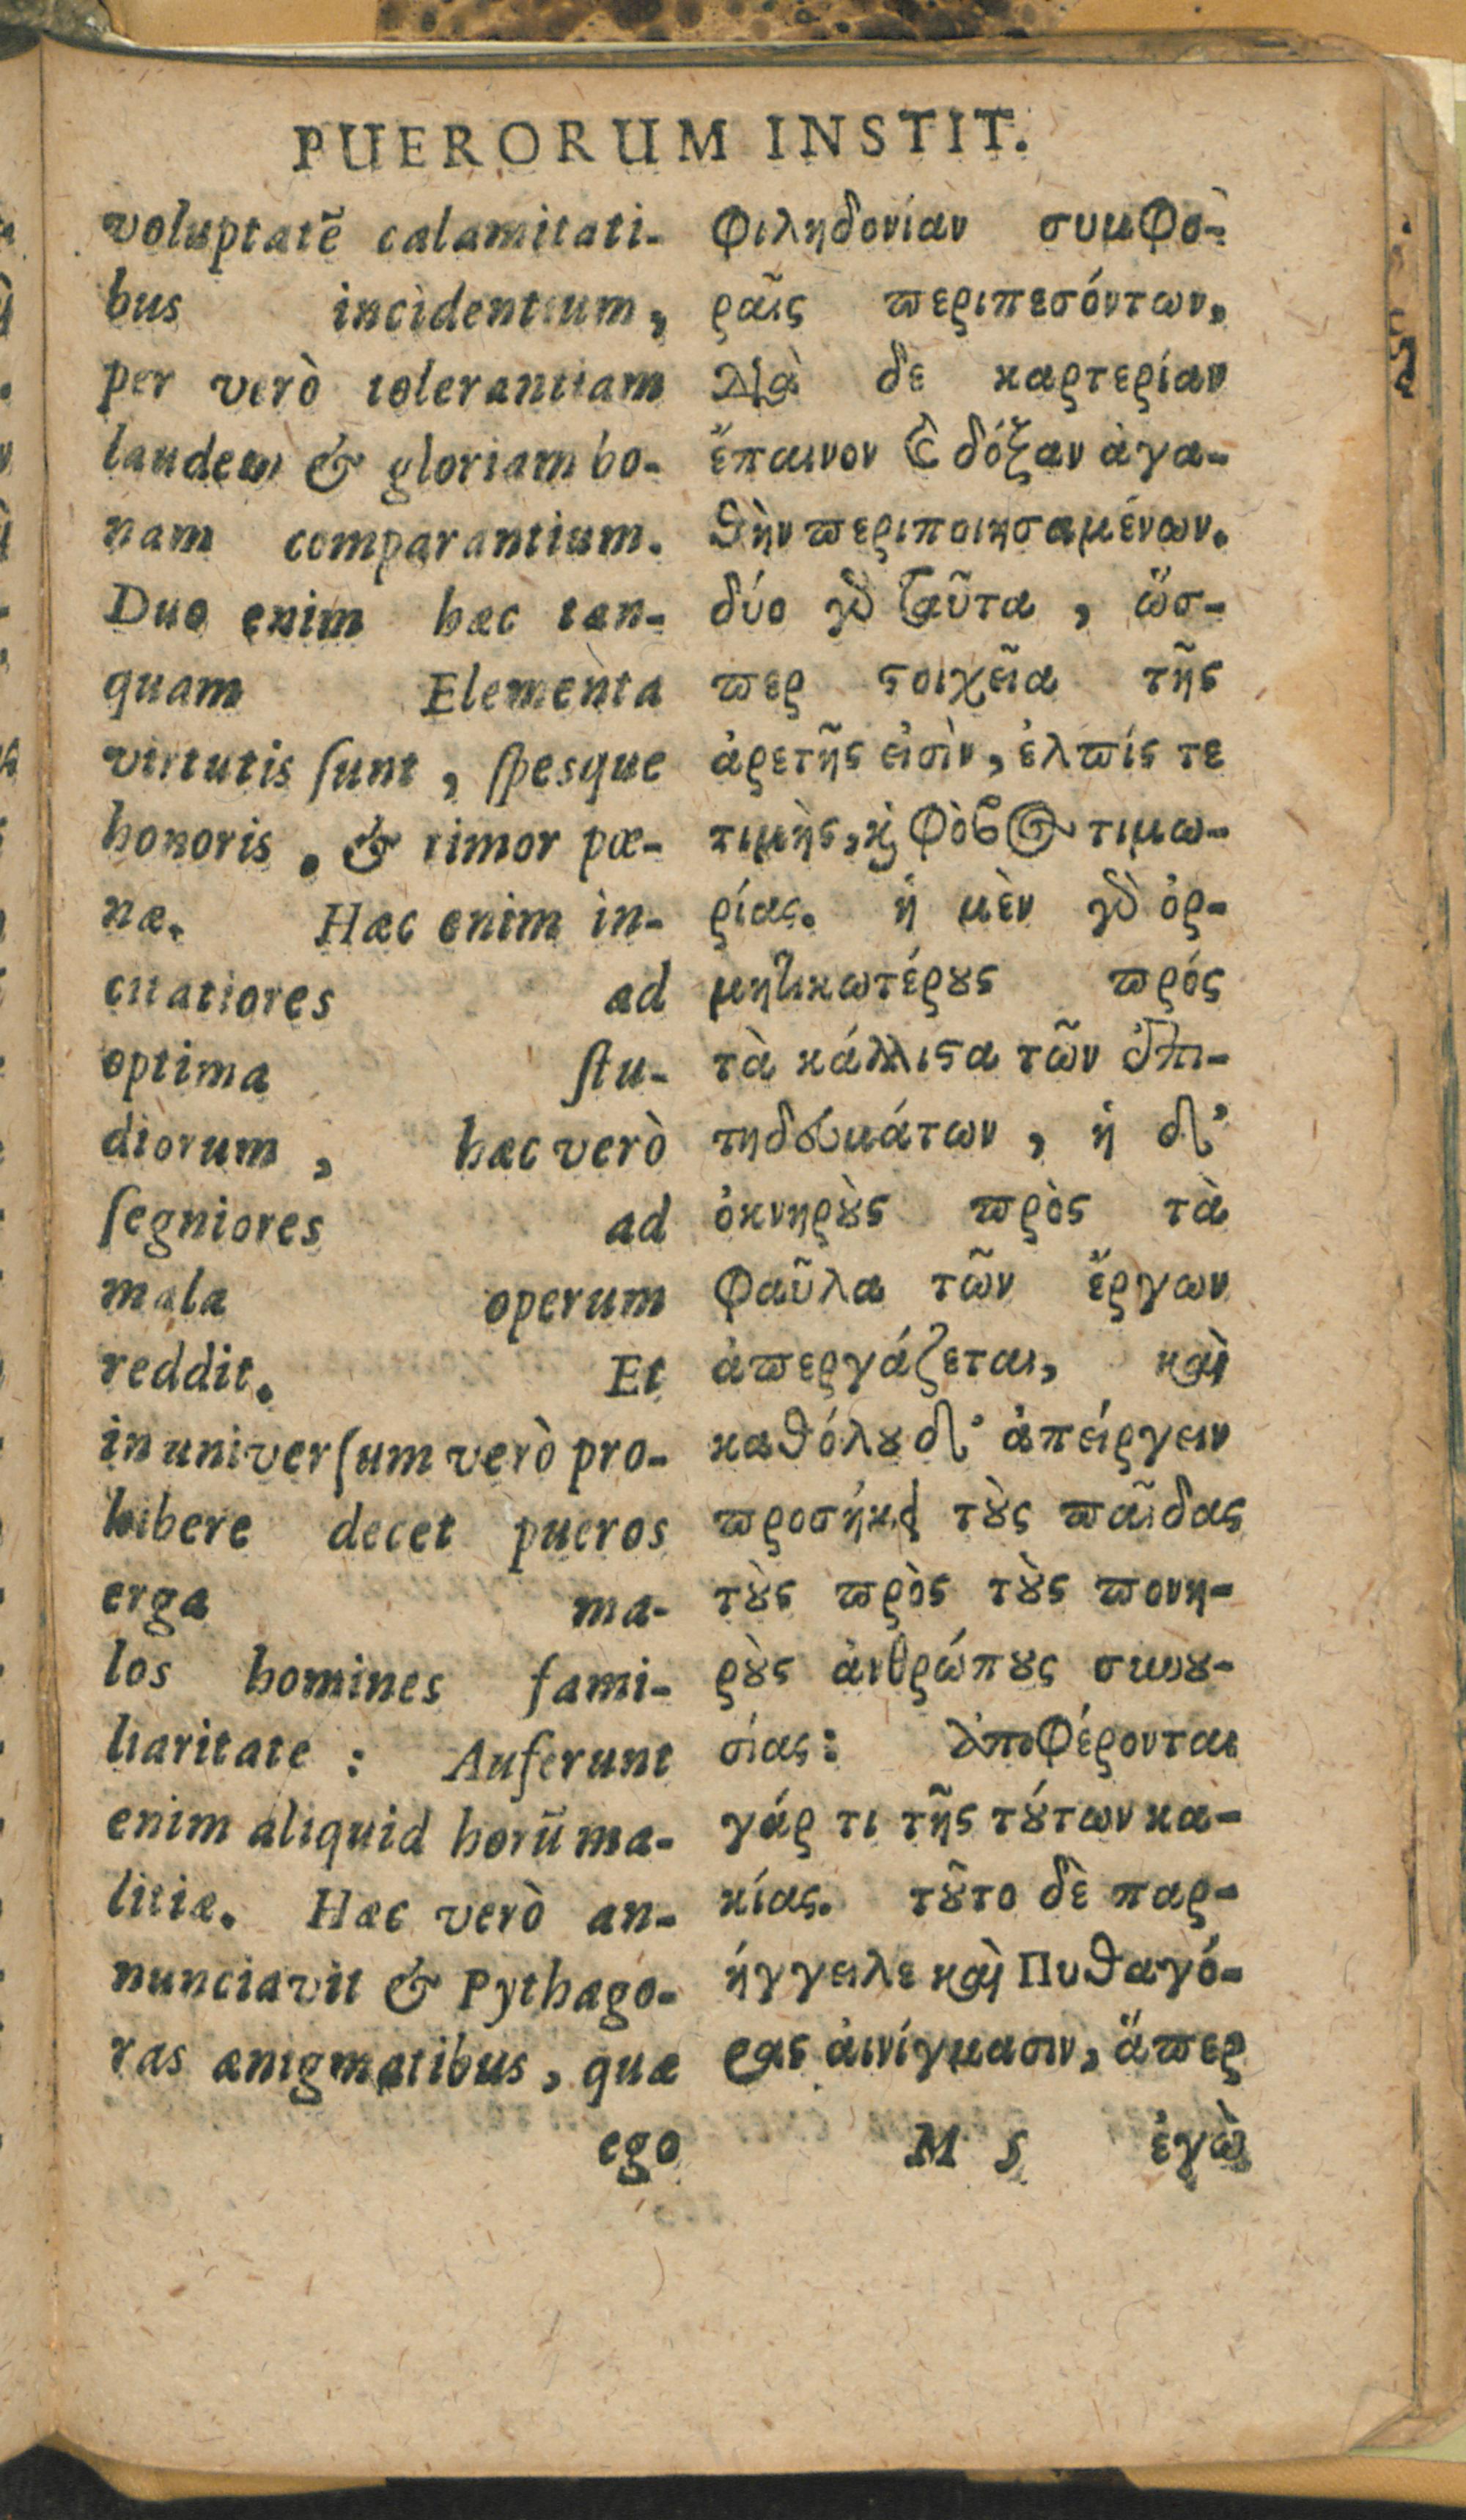 PUERORUM INSTIT.
voluptatē calamitati-
bus incidentium,
per verò tolerantiam
laudem & gloriam bo-
nam comparantium.
Duo enim hæc tan-
quam Elementa
virtutis ſunt, ſpesque
honoris. & timor pœ-
næ. Hæc enim in-
citatiores ad
optima ſtu-
diorum, hæc verò
ſegniores ad
mala operum
reddit. Et
in univerſum verò pro-
hibere decet pueros
erga ma-
los homines fami-
liaritate: Auferunt
enim aliquid horū ma-
litiæ. Hæc verò an-
nunciavit & Pythago-
ras ænigmatibus, quæ
ego
φιληδονίαν συμφο-
ραῖς περιπεσόντων,
διὰ δε καρτερίαν
ἔπαινον καὶ δόξαν ἀγα-
θὴν περιποιησαμένων.
δύο γὸ ταῦτα, ὥσ-
περ ϛοιχεῖα τῆς
ἀρετῆς εἰσὶν, ἐλπίς τε
τιμὴς, ϗ φόβος τιμω-
ρίας. ἡ μὲν γὸ ὁρ-
μητικωτέρȣς πρός
τὰ κάλλιϛα τῶν ἐπι-
τηδευμάτων, ἡ δ᾽
ὀκνηρȣ̀ς πρὸς τὰ
φαῦλα τῶν ἔργων
ἀπεργάζεται, καὶ
καθόλȣ δ᾽ ἀπείργειν
προσήκει τȣ̀ς παῖδας
τȣ̀ς πρὸς τȣ̀ς πονη-
ρȣ̀ς ἀνθρώπȣς συνȣ-
σίας: ἀποφέρονται
γάρ τι τῆς τȣ́των κα-
κίας. τȣ͂το δὲ παρ-
ήγγειλε καὶ Πυθαγό-
ρας αἰνίγμασιν, ἅπερ
M 5 ἐγὼ